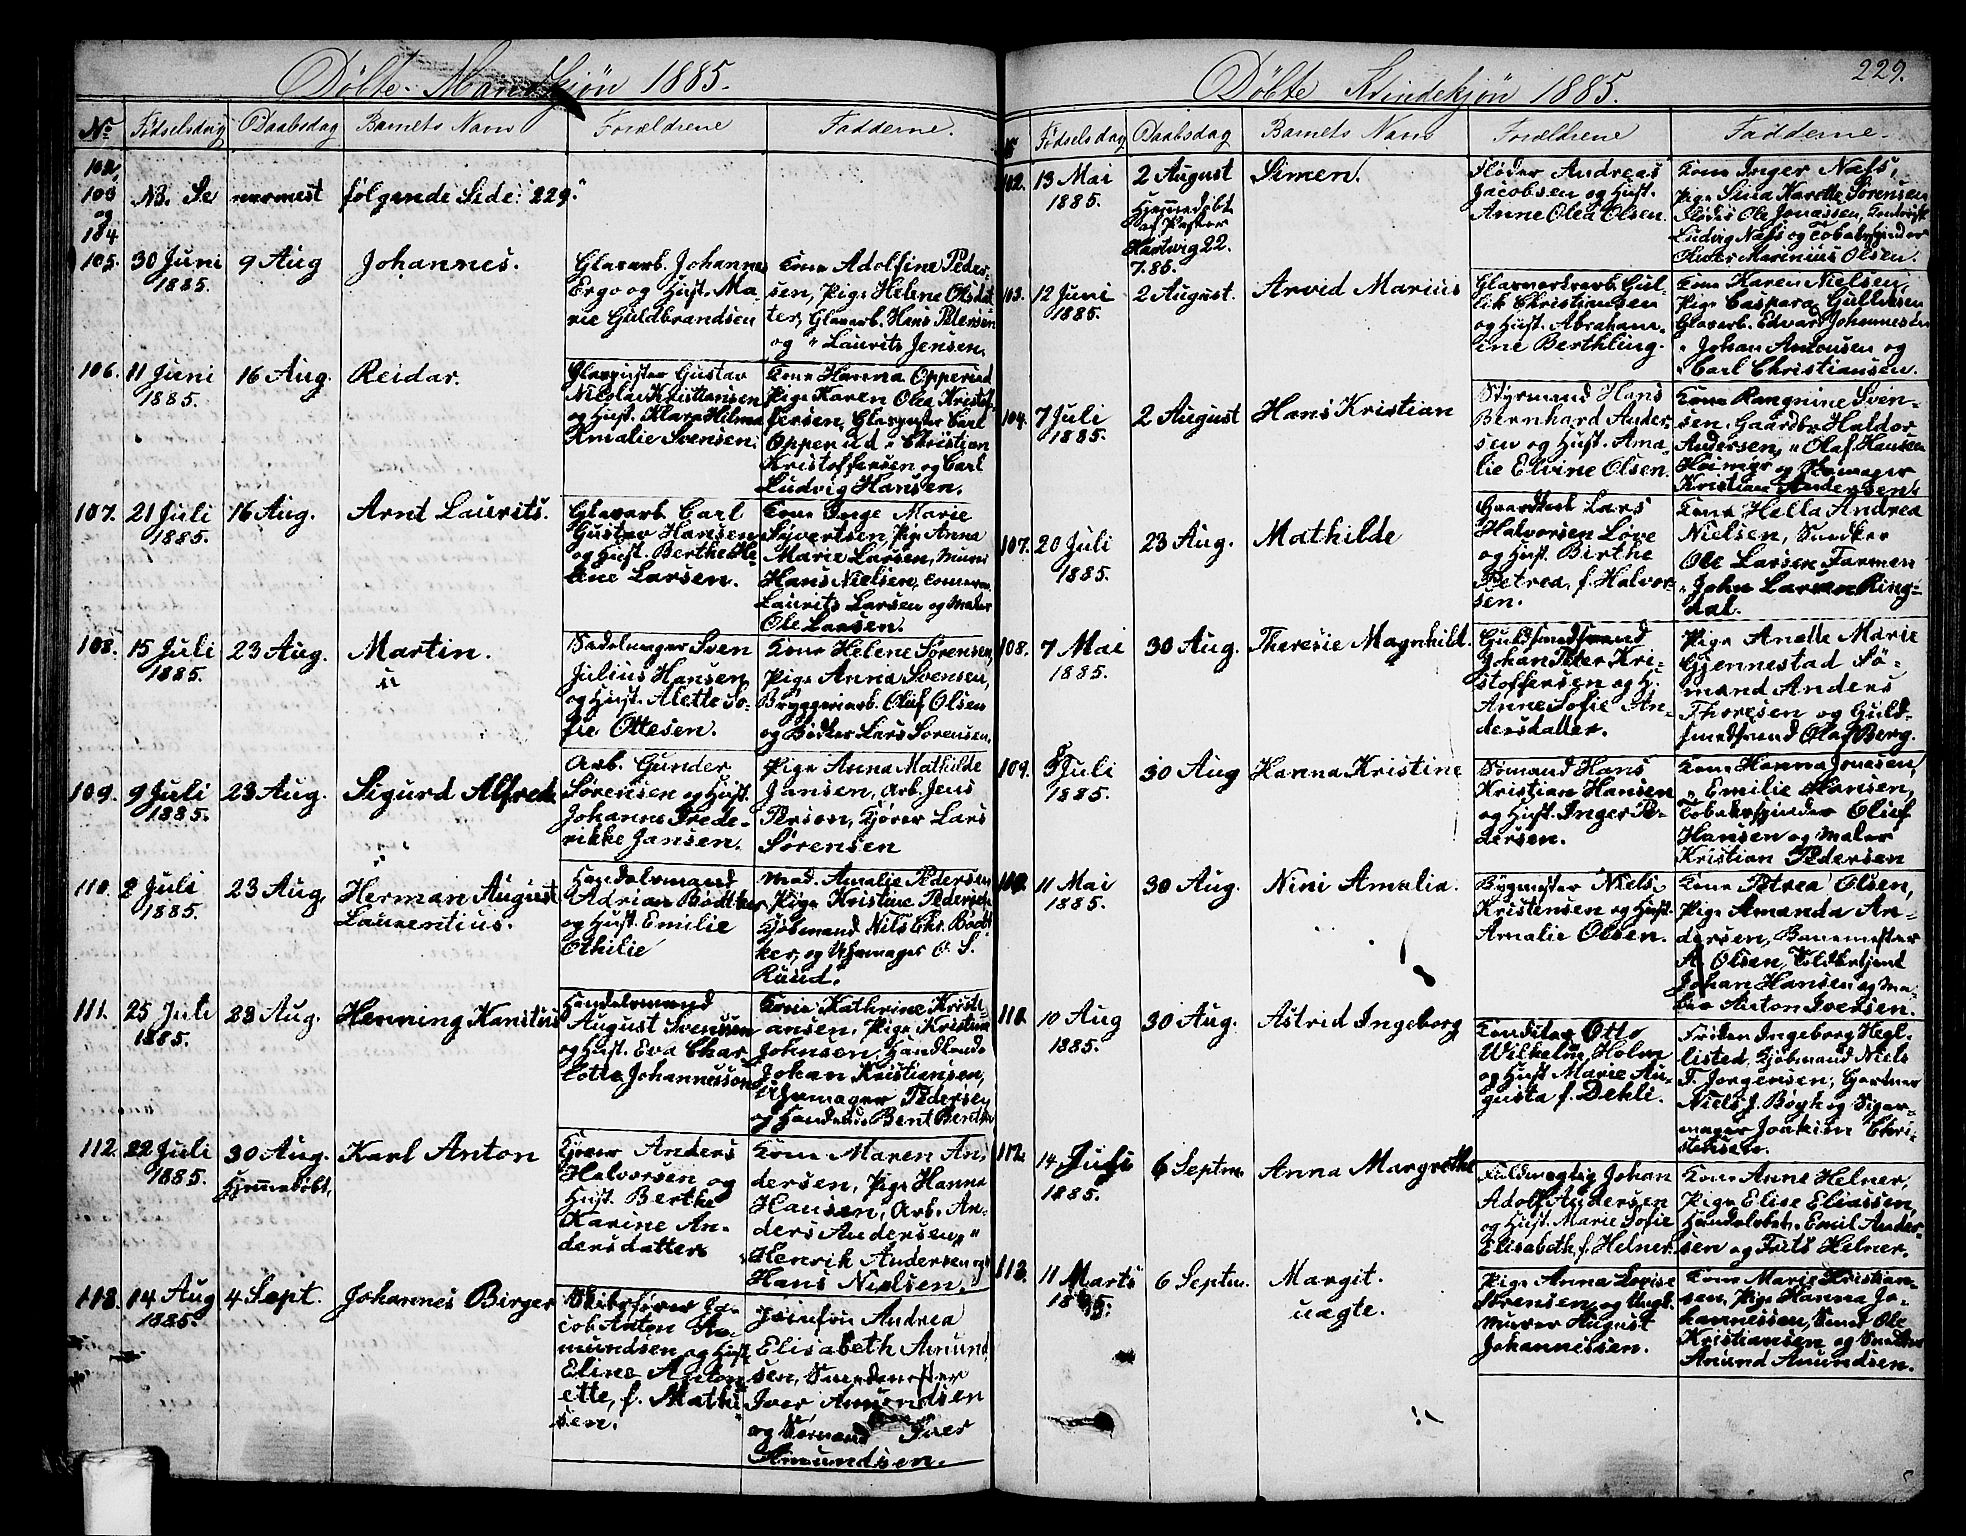 Døbte Mandkjøn 1885.
No Fødselsdag Daabsdag Barnets Navn Forældrene Fadderne.
102,
103 NB. Se nærmest følgende Side: 229.
og
104
105. 30 Juni 9 Aug Johannes.
1885.
Glasarb. Johannes
Ergo og Hust. Ma-
rie Guldbrandsen
Kone Adolfine Peder-
sen, Pige Helene Olsdat-
ter, Glasarb. Hans Petersen
og " Laurits Jensen.
106. 11 Juni 16 Aug. Reidar.
1885.
Glaspuster Gustav
Nicolai Kristiansen
og Hust. Klara Hilma
Amalie Svensen.
Kone Hanna Opperud
Pige Karen Olea Kristof-
fersen, Glaspuster Carl
Opperud " Christian
Kristoffersen og Carl
Ludvig Hansen.
107. 21 Juli 16 Aug. Arnt Laurits.
1885.
Glasarb. Carl
Gustav Hansen
og Hust. Berthe Ele-
ene Larsen.
Kone Inge Marie
Syvertsen, Pige Anna
Marie Larsen, Murer
Hans Nielsen,
Laurits Larsen og Maler
Ole Larsen.
108. 15 Juli 23 Aug. Martin.
1885.
Sadelmager Sven
Julius Hansen
og Hust. Alette So-
fie Ottesen.
Kone Helene Sørensen,
Pige Anna Svensen,
Bryggeriarb. Oluf Olsen
og Bødker Lars Sørensen.
109. 9 Juli 23 Aug. Sigurd Alfred.
1885.
Arb. Gunder
Sørensen og Hust.
Johanne Frede-
rikke Jansen.
Pige Anna Mathilde
Jansen, Arb. Jens
Person, Kjører Lars
Sørensen
110. 2 Juli 23 Aug. Herman August
1885. Laurentius.
Handelsmand
Adrian Bødtker
og Hust. Emilie
Othilie
Mad. Amalie Pedersen
Pige Kristine Pedersen
Kjøbmand Nils Chr. Bødt-
ker, og Uhrmager O. S.
Ruud.
111. 25 Juli 23 Aug. Henning Kanitus
1885.
Handelsmand
August Svensson
og Hust. Eva Char-
lotta Johannesson
Kone Kathrine Kristi-
ansen, Pige Kristine
Johnsen, Handlende
Johan Kristiansen,
Uhrmager Pedersen
og Handlende Bent Bentsen
112. 22 Juli 30 Aug. Karl Anton
1885. Hjemmedøbt,
Kjører Anders
Halvorsen og
Hust. Berthe
Karine An-
dersdatter
Kone Maren An-
dersen, Pige Hanna
Hansen, Arb. An-
ders Andersen, "
Henrik Andersen og
Hans Nielsen.
113. 14 Aug 4 Sept. Johannes Birger
1885.
Skibsfører Ja-
cob Anton A-
mundsen og Hust.
Eline Anton-
ette, f. Mathi-
sen.
Andrea
Elisabeth Amund-
sen, Smedmester
Iver Amundsen
og Sømand Iver
Amundsen.
Døbte Kvindekjøn 1885. 229.
No Fødselsdag Daabsdag Barnets Navn Forældrene Fadderne.
102. 13 Mai 2 August Simen.
1885. Hjemmedøbt
af Pastor
Hartwig 22.
7.85.
Fløder Andreas
Jacobsen og Hust.
Anne Olea Olsen.
Kone Inger Næss,
Pige Sina Karette Sørensen
Fløder Ole Jonassen,
Ludvig Næss og Tobakspinder
Marinius Olsen.
103. 12 Juni 2 August. Arvid Marius
1885.
Glasværksarb. Gul-
lik Christiansen
og Hust. Abraham-
ine Berthling.
Kone Karen Nielsen,
Pige Caspara Gulliksen
Glasarb. Edvard Johannesen
" Johan Antonsen og
" Carl Christiansen.
104. 7 Juli 2 August Hans Kristian
1885.
Styrmand Hans
Bernhard Ander-
sen og Hust. Ama-
lie Elvine Olsen.
Kone Rangnine Sven-
sen, Gaardbr. Haldor
Andersen, " Olaf Hansen
og
Kristian Andersen.
107. 20 Juli 23 Aug. Mathilde
1885.
Lars
Halvorsen Løve
og Hust. Birthe
Petrea, f. Halvor-
sen.
Kone Hella Andrea
Nielsen, Snedker
Ole Larsen Farmen
" John Larsen Ring-
dal.
108. 7 Mai 30 Aug. Theresie Magnhild.
1885.
Guldsmedsvend
Johan Peter Kri-
stoffersen og H.
Anne Sofie An-
dersdatter.
Pige Anette Marie
Gjennestad Sø-
mand Anders
Thoresen og Guld-
smedsvend Olaf Berg.
109. 5 Juli 30 Aug Hanna Kristine
1885.
Sømand Hans
Kristian Hansen
og Hust. Inger Pe-
dersen.
Kone Hanna Jonasen,
" Emilie Hansen,
Tobakspinder Oluf
Hansen og Maler
Kristian Pedersen
110. 11 Mai 30 Aug. Nini Amalia.
1885.
Bygmester Niels
Kristensen og Hust.
Amalie Olsen.
Kone Petrea Olsen,
Pige Amanda An-
dersen, Banemester
A. Olsen, Toldbetjent
Johan Hansen og Ma-
ler Anton Iversen.
111. 10 Aug 30 Aug. Astrid Ingeborg
1885.
Otto
Wilhelm Holm
og Hust Marie Au-
gusta f. Dehli.
Frøken Ingeborg Hegl-
listed, Kjøbmand Niels
F. Jørgensen, Gartner
Niels J. Bøgh og Sigar-
mager Joakim Chri-
stensen.
112. 14 Juli 6 Septm. Anna Margrethe
1885.
Fuldmægtig Johan
Adolf Andersen
og Hust. Marie Sofie
Elisabeth, f. Helner.
Kone Anne Helner,
Pige Elise Eliassen,
Handelsbet. Emil Ander-
sen og Frits Helner.
113. 11 Marts 6 Septm. Margit.
1885. uægte.
Pige Anna Lovise
Sørensen, og Ungk.
Murer August
Johannessen.
Kone Marie Kristian-
sen, Pige Hanna Jo-
hannessen, Smed Ole
Kristiansen og
Amund Amundsen.